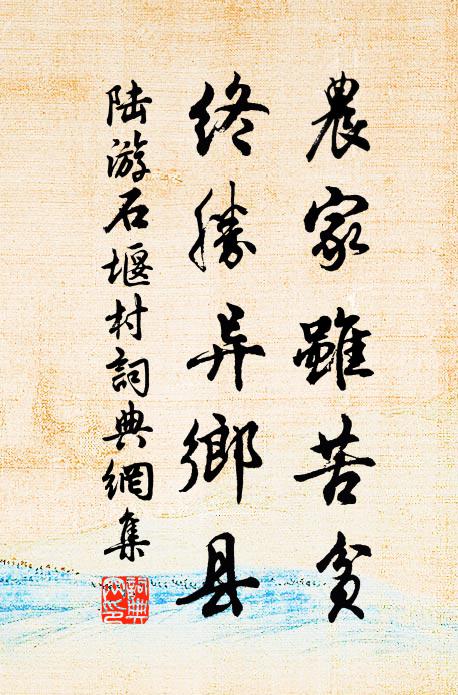 農家雖苦貧
終勝异鄉县
陸游石堰村詞典網集